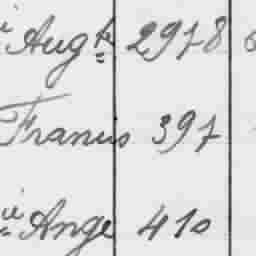 Augte 2978
Francis 397
Ange 410